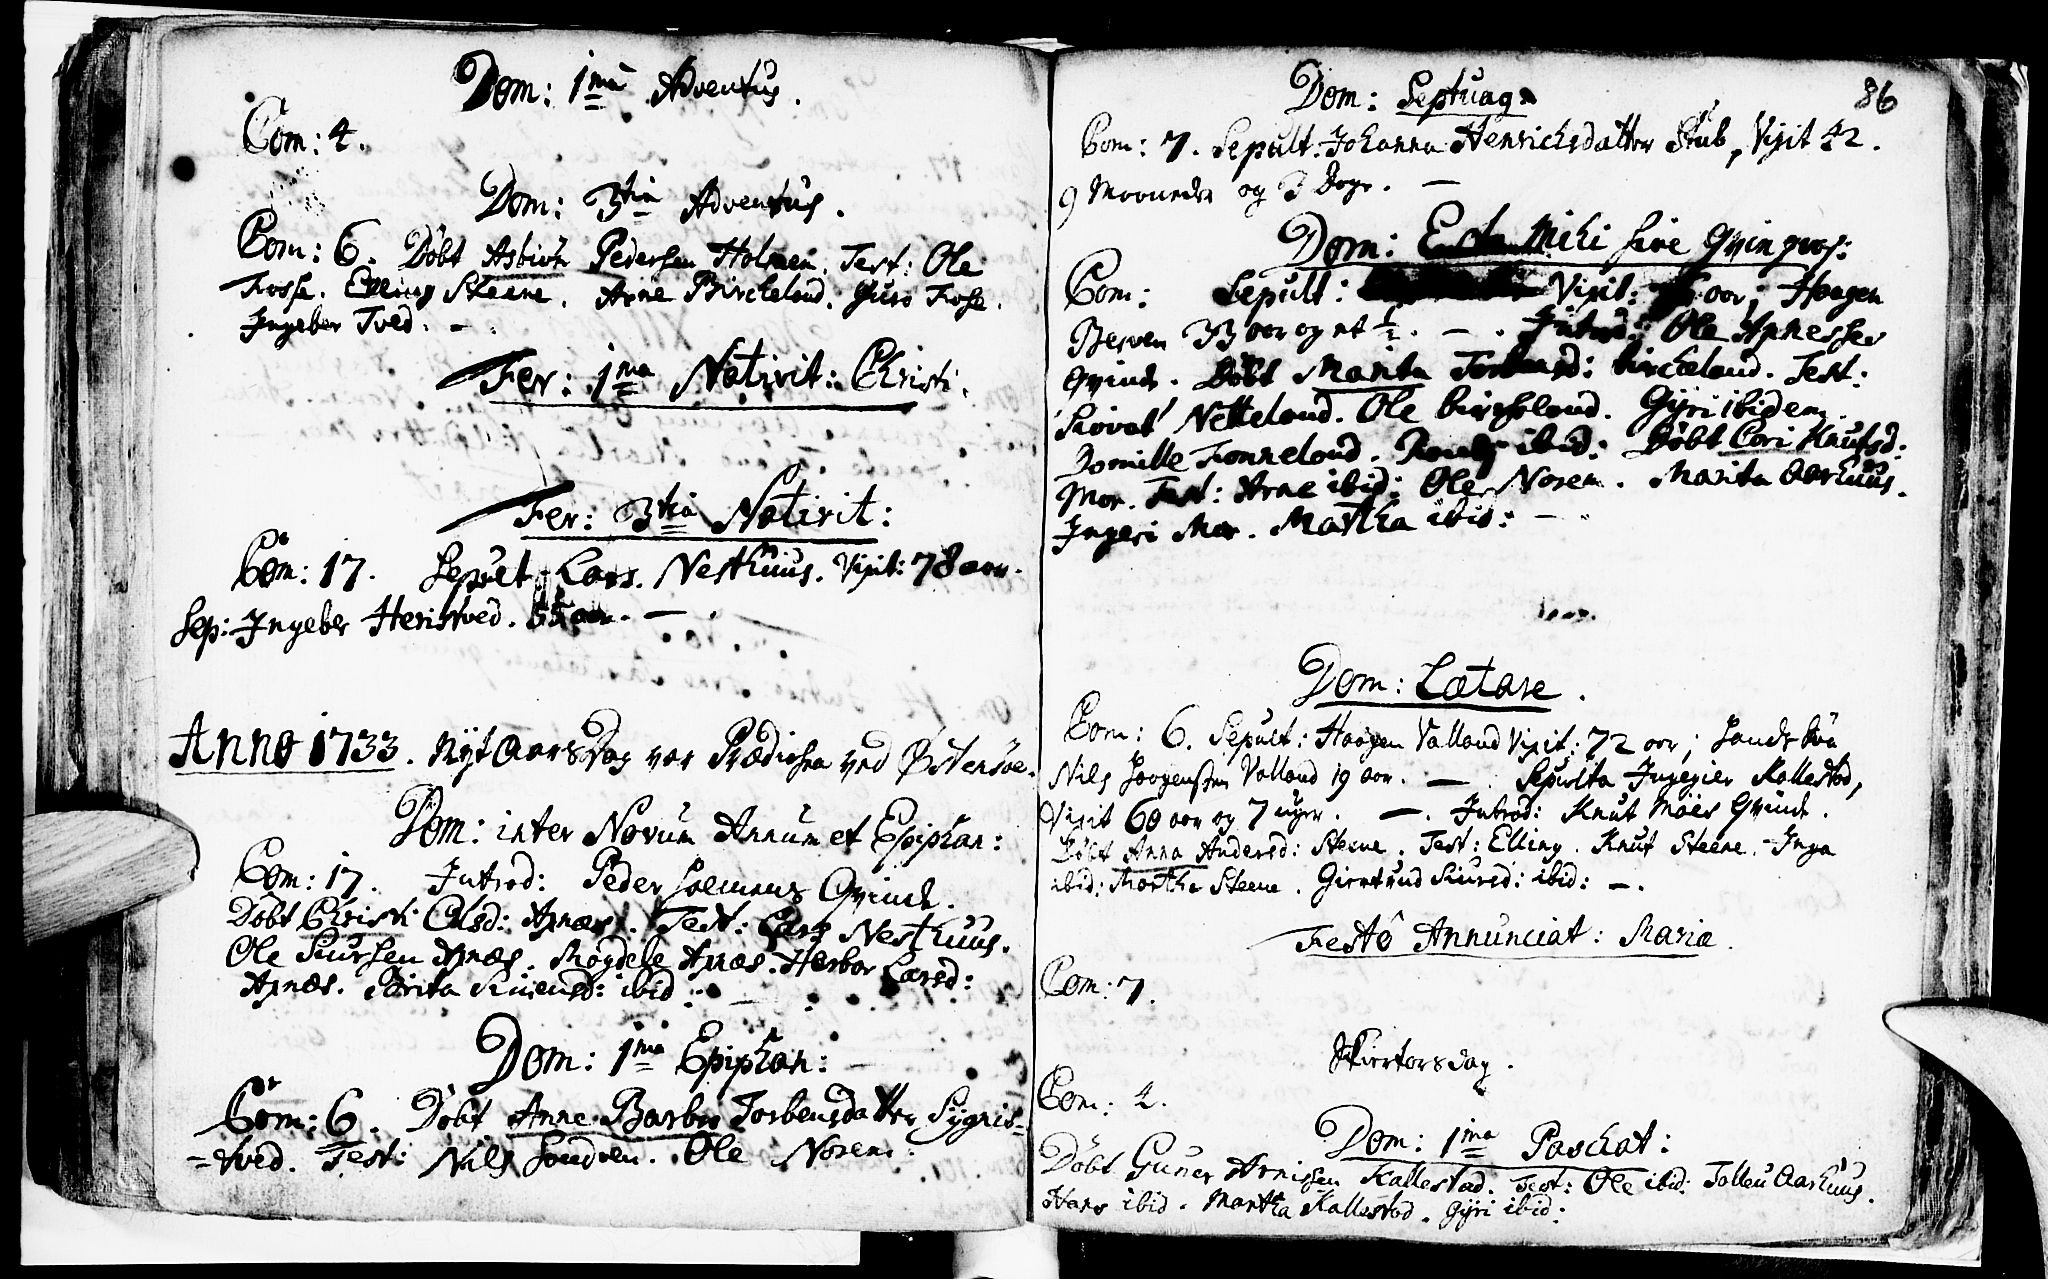 Dom: 1ma Adventus.
Com: 4.
Dom: 3tia Adventus.
Com: 6. Döbt Asbiön Pedersen Holmen. Test: Ole
Fosse. Elling Steene. Arne Birckeland. Guro Fosse.
Ingeber Tved. –
Fer: 1ma Nativit: Christi.
Fer: 3tia Nativit:
Com: 17. Sepult Lars Nesthuus. Vixit: 78 aar.
Sep: Ingeber Heristved. aar. –
Anno 1733. Nyt Aars Dag var Prædichen ved Östensöe.
Dom: inter Novum Annum et Epiphan:
Com: 17. Introd: Peder Qvinde.
Döbt Christi Olsd: Axnæs. Test: Lars Nesthuus.
Ole Siursen Axnæs. Magdele Axnæs. Herbor Larsd:
Axnæs. Brita ibid: –
Dom: 1ma Epiphan:
Com: 6. Döbt Anne Barbro Torbensdatter Sygnis=
=tved. Test: Nils Sandven. Ole Noren.
86
Dom: Septuag.
Com: 7. Sepult: Johanna Henrichsdatter Stub, Vixit 42.
9 Maaneder og 3 Dage. –
Dom: Esto Mihi sive Qvinqvag:
Com: Sepult: Vixit: aar; Haagen
Berven 33 aar og et ½. – . Introd: Ole Axnesses
Qvinde. Döbt Marita Birckeland. Test:
Siovat Netteland. Ole Birckeland. Gyri ibidem.
Tonneland. ibid: Döbt Cari Knutsd:
Mor. Test: Arne ibid: Ole Noren. Marita Aarhuus.
Ingeri Mor. Martha ibid: –
Dom: Lætare.
Com: 6. Sepult: Haagen Valland Vixit: 72 aar;
Nils Haagensen Valland 19 aar. – . Sepulta Kallestad,
Vixit 60 aar og 7 uger. – . Introd: Knut Möes Qvinde.
Döbt Anna Andersd: Steene. Test: Elling. Knut Steene. Inga
ibid: Martha Steene. Giertrud Siursd: ibid: – .
Festo Annunciat: Mariæ.
Com: 7.
Skiertorsdag.
Com: 2.
Dom: 1ma Paschat:
Döbt Guner Arnissen Kallestad. Test: Ole ibid: Aarhuus.
Hans ibid. Martha Kallestad. Gyri ibid: